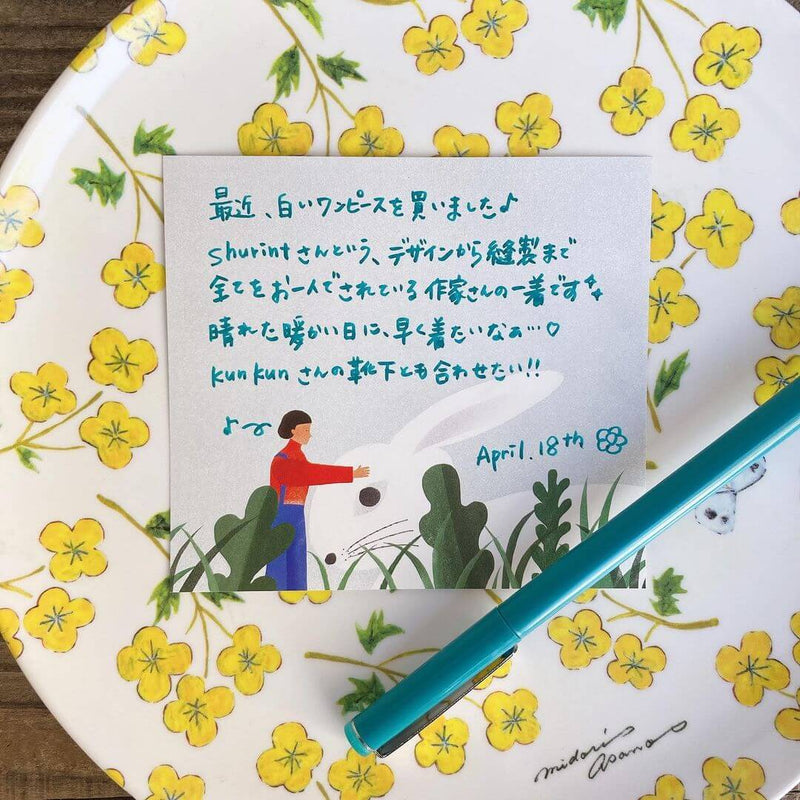 最近、白いワンピースを買いました♪
shurintさんという、デザインから縫製まで
全てをお一人でされている作家さんの一着です✨
晴れた暖かい日に、早く着たいなぁ…♡
kunkunさんの靴下とも合わせたい!!
♪〜
April.18th
midori asano